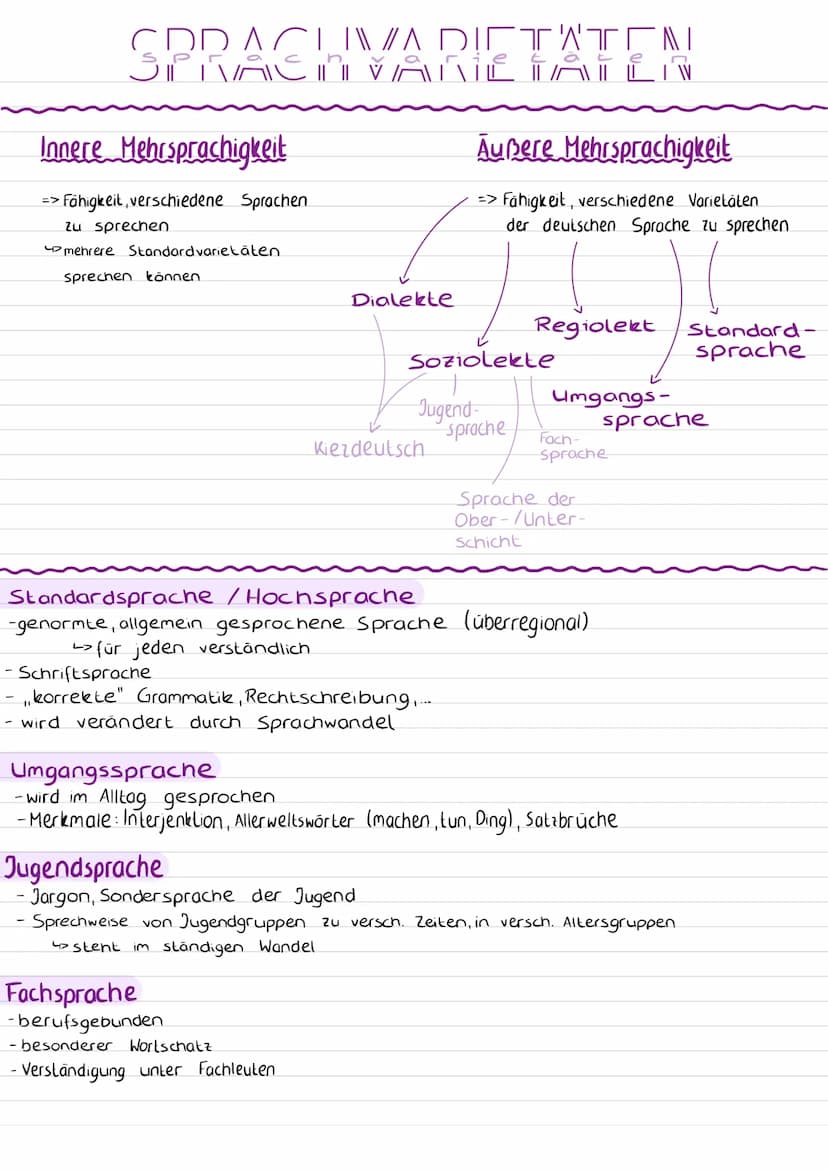 SPRACHVARIETÄTEN
sprachvarietäten
Innere Mehrsprachigkeit
=> Fähigkeit, verschiedene Sprachen
zu sprechen
↳ mehrere Standardvarietäten
sprechen können
Äußere Mehrsprachigkeit
=> Fähigkeit, verschiedene Varietäten
der deutschen Sprache zu sprechen
Dialekte
Regiolekt
Standard-
sprache
Soziolekte
Umgangs-
sprache
Jugend-
sprache
Kiezdeutsch
Fach-
sprache
Sprache der
Ober-/Unter-
schicht
Standardsprache / Hochsprache
-genormte, allgemein gesprochene Sprache (überregional)
↳ für jeden verständlich
- Schriftsprache
- „korrekte" Grammatik, Rechtschreibung,...
- wird verändert durch Sprachwandel
Umgangssprache
-wird im Alltag gesprochen
-Merkmale: Interjenktion, Allerweltswörter (machen, tun, Ding), Satzbrüche
Jugendsprache
- Jargon, Sondersprache der Jugend
- Sprechweise von Jugendgruppen zu versch. Zeiten, in versch. Altersgruppen
↳ steht im ständigen Wandel
Fachsprache
-berufsgebunden
-besonderer Wortschatz
- Verständigung unter Fachleuten